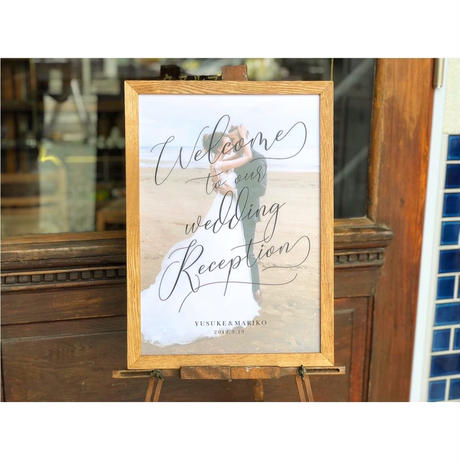 Welcome
to our
wedding
Reception
YUSUKE&MARIKO